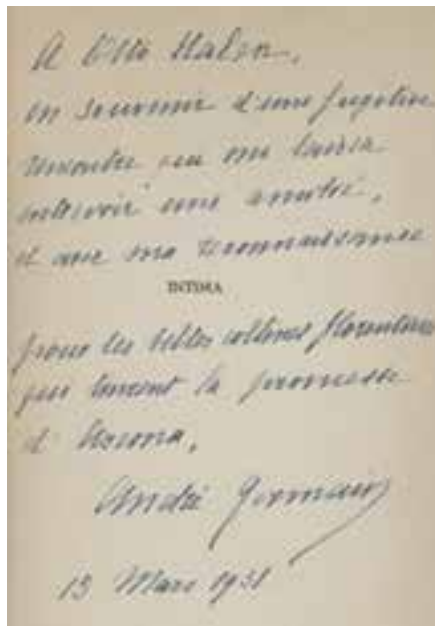 A Otto Kahn,
en souvenir d'une fugitive
rencontre qui me laissa
entrevoir une amitié,
et avec ma reconnaissance
INTIMA
pour les belles collines florentines
qui tinrent la promesse
d'Ascona,
André Germain
13 Mars 1931